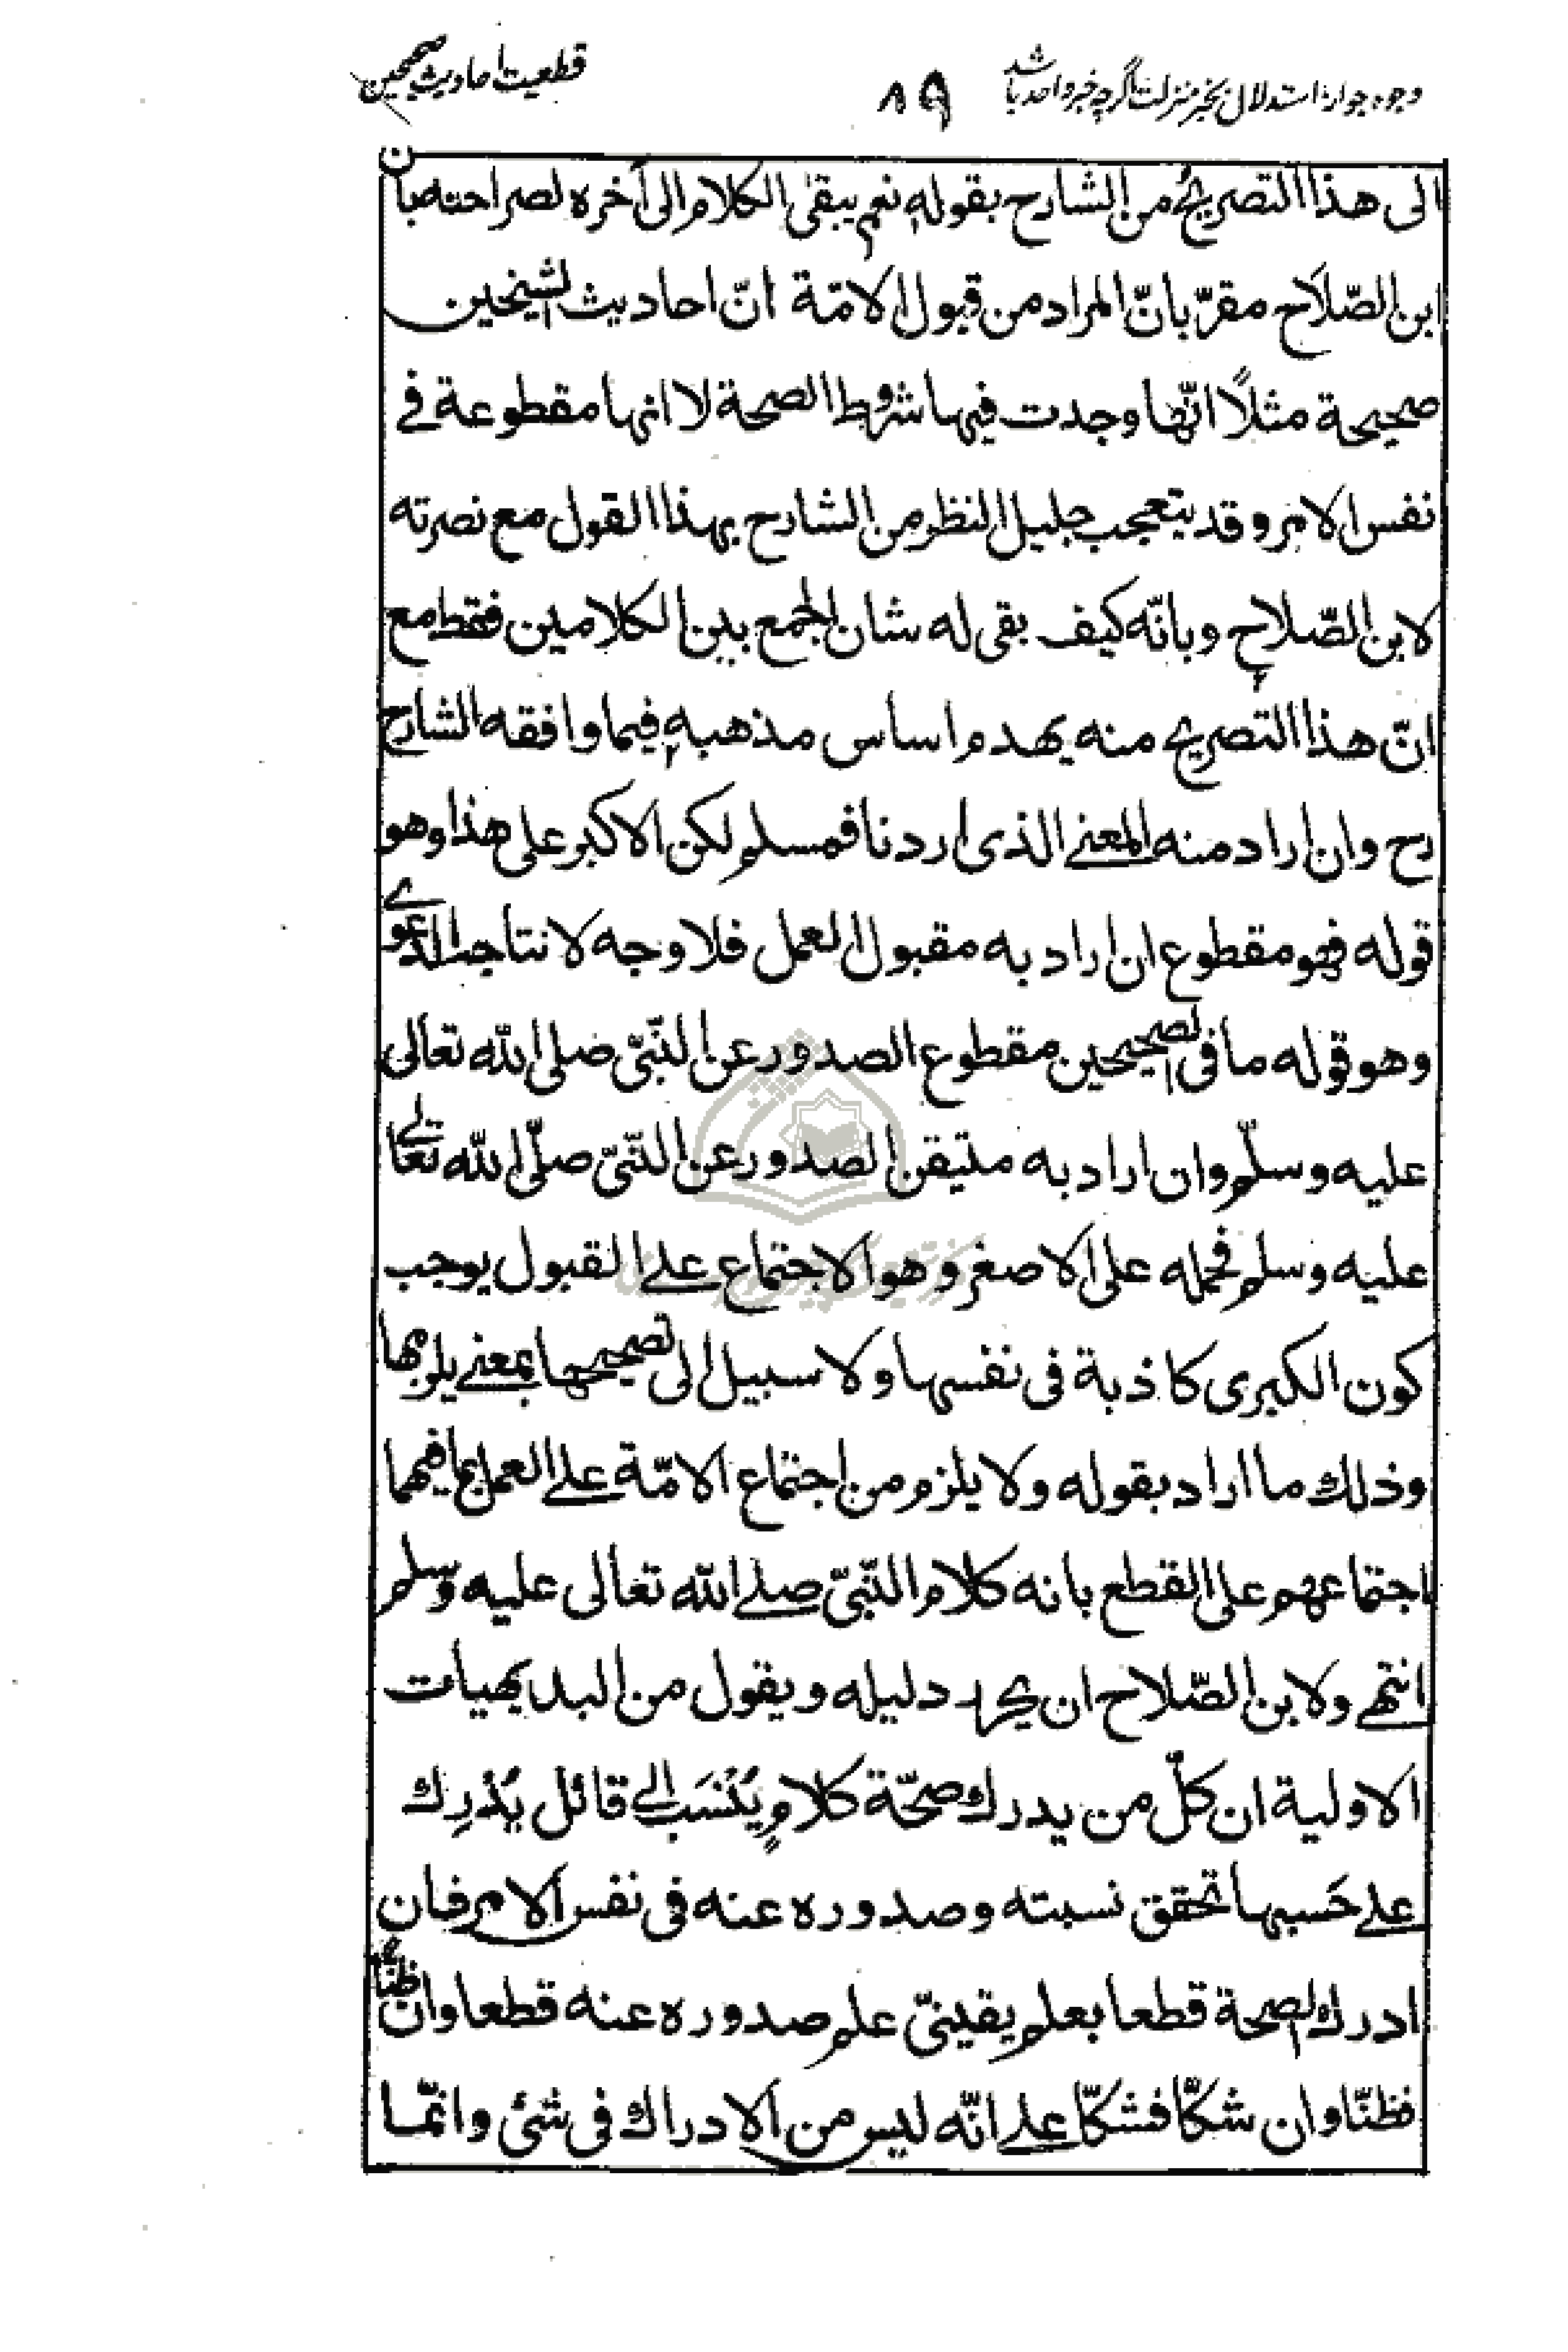 وجوه جواز استدلال بخبر منزلت اگرچه خبر واحد باشد
۸۹
قطعیت احادیث صحیحین
الى هذا التصريح من الشارح بقوله نعم يبقى الكلام الى اٰخره لصراحته بان
ابن الصّلاح مقرّ بانّ المراد من قبول الامّة انّ احاديث الشيخين
صحيحة مثلًا انّها وجدت فيها شروط الصحة لا انها مقطوعة في
نفس الامر وقد يتعجب جليل النظر من الشارح بهذا القول مع نصرته
لابن الصّلاح وبانّه كيف بقى له شان الجمع بين الكلامين فقط مع
انّ هذا التصريح منه يهدم اساس مذهبه فيما وافقه الشارح
رح وان اراد منه المعنے الذى اردنا فمسلم لكن الاكبر على هذا وهو
قوله فهو مقطوع ان اراد به مقبول العمل فلا وجه لانتاجه الدعوے
وهو قوله ما فى الصحيحين مقطوع الصدور عن النّبىّ صلى الله تعالى
عليه وسلّم وان اراد به متيقن الصدور عن النّبىّ صلّى الله تعالے
عليه وسلم فحمله على الاصغر وهو الاجتماع علے القبول يوجب
كون الكبرى كاذبة فى نفسها ولا سبيل الى تصحيحها بمعنے يلزمها
وذلك ما اراد بقوله ولا يلزم من اجتماع الامّة علے العمل بما فيهما
اجتماعهم على القطع بانه كلام النّبىّ صلے الله تعالى عليه وسلم
انتهے ولابن الصّلاح ان يحرر دليله ويقول من البديهيات
الاولية ان كلّ من يدرك صحّة كلامٍ يُنْسَب الے قائل يُدْرِك
علے حَسبها تحقق نسبته وصدوره عنه فى نفس الامر فان
ادرك الصحة قطعا بعلم يقينىّ علم صدوره عنه قطعا وان ظنًّا
فظنّا وان شكّا فشكّا علے انّه ليس من الادراك فى شئ وانّما